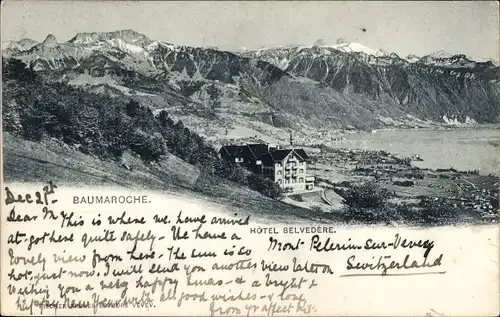 BAUMAROCHE.
HÔTEL BELVEDÈRE.
Dec 21st
Dear M This is where we have arrived
at - got here quite safely - We have a
lovely view in the The sun is so
hot, just now. I will send you another view later on
Wishing you a very happy Xmas - & a bright &
happy New Year with all good wishes - & love
from yr affect
Mont Pelerin-sur-Vevey
Switzerland
VEVEY.